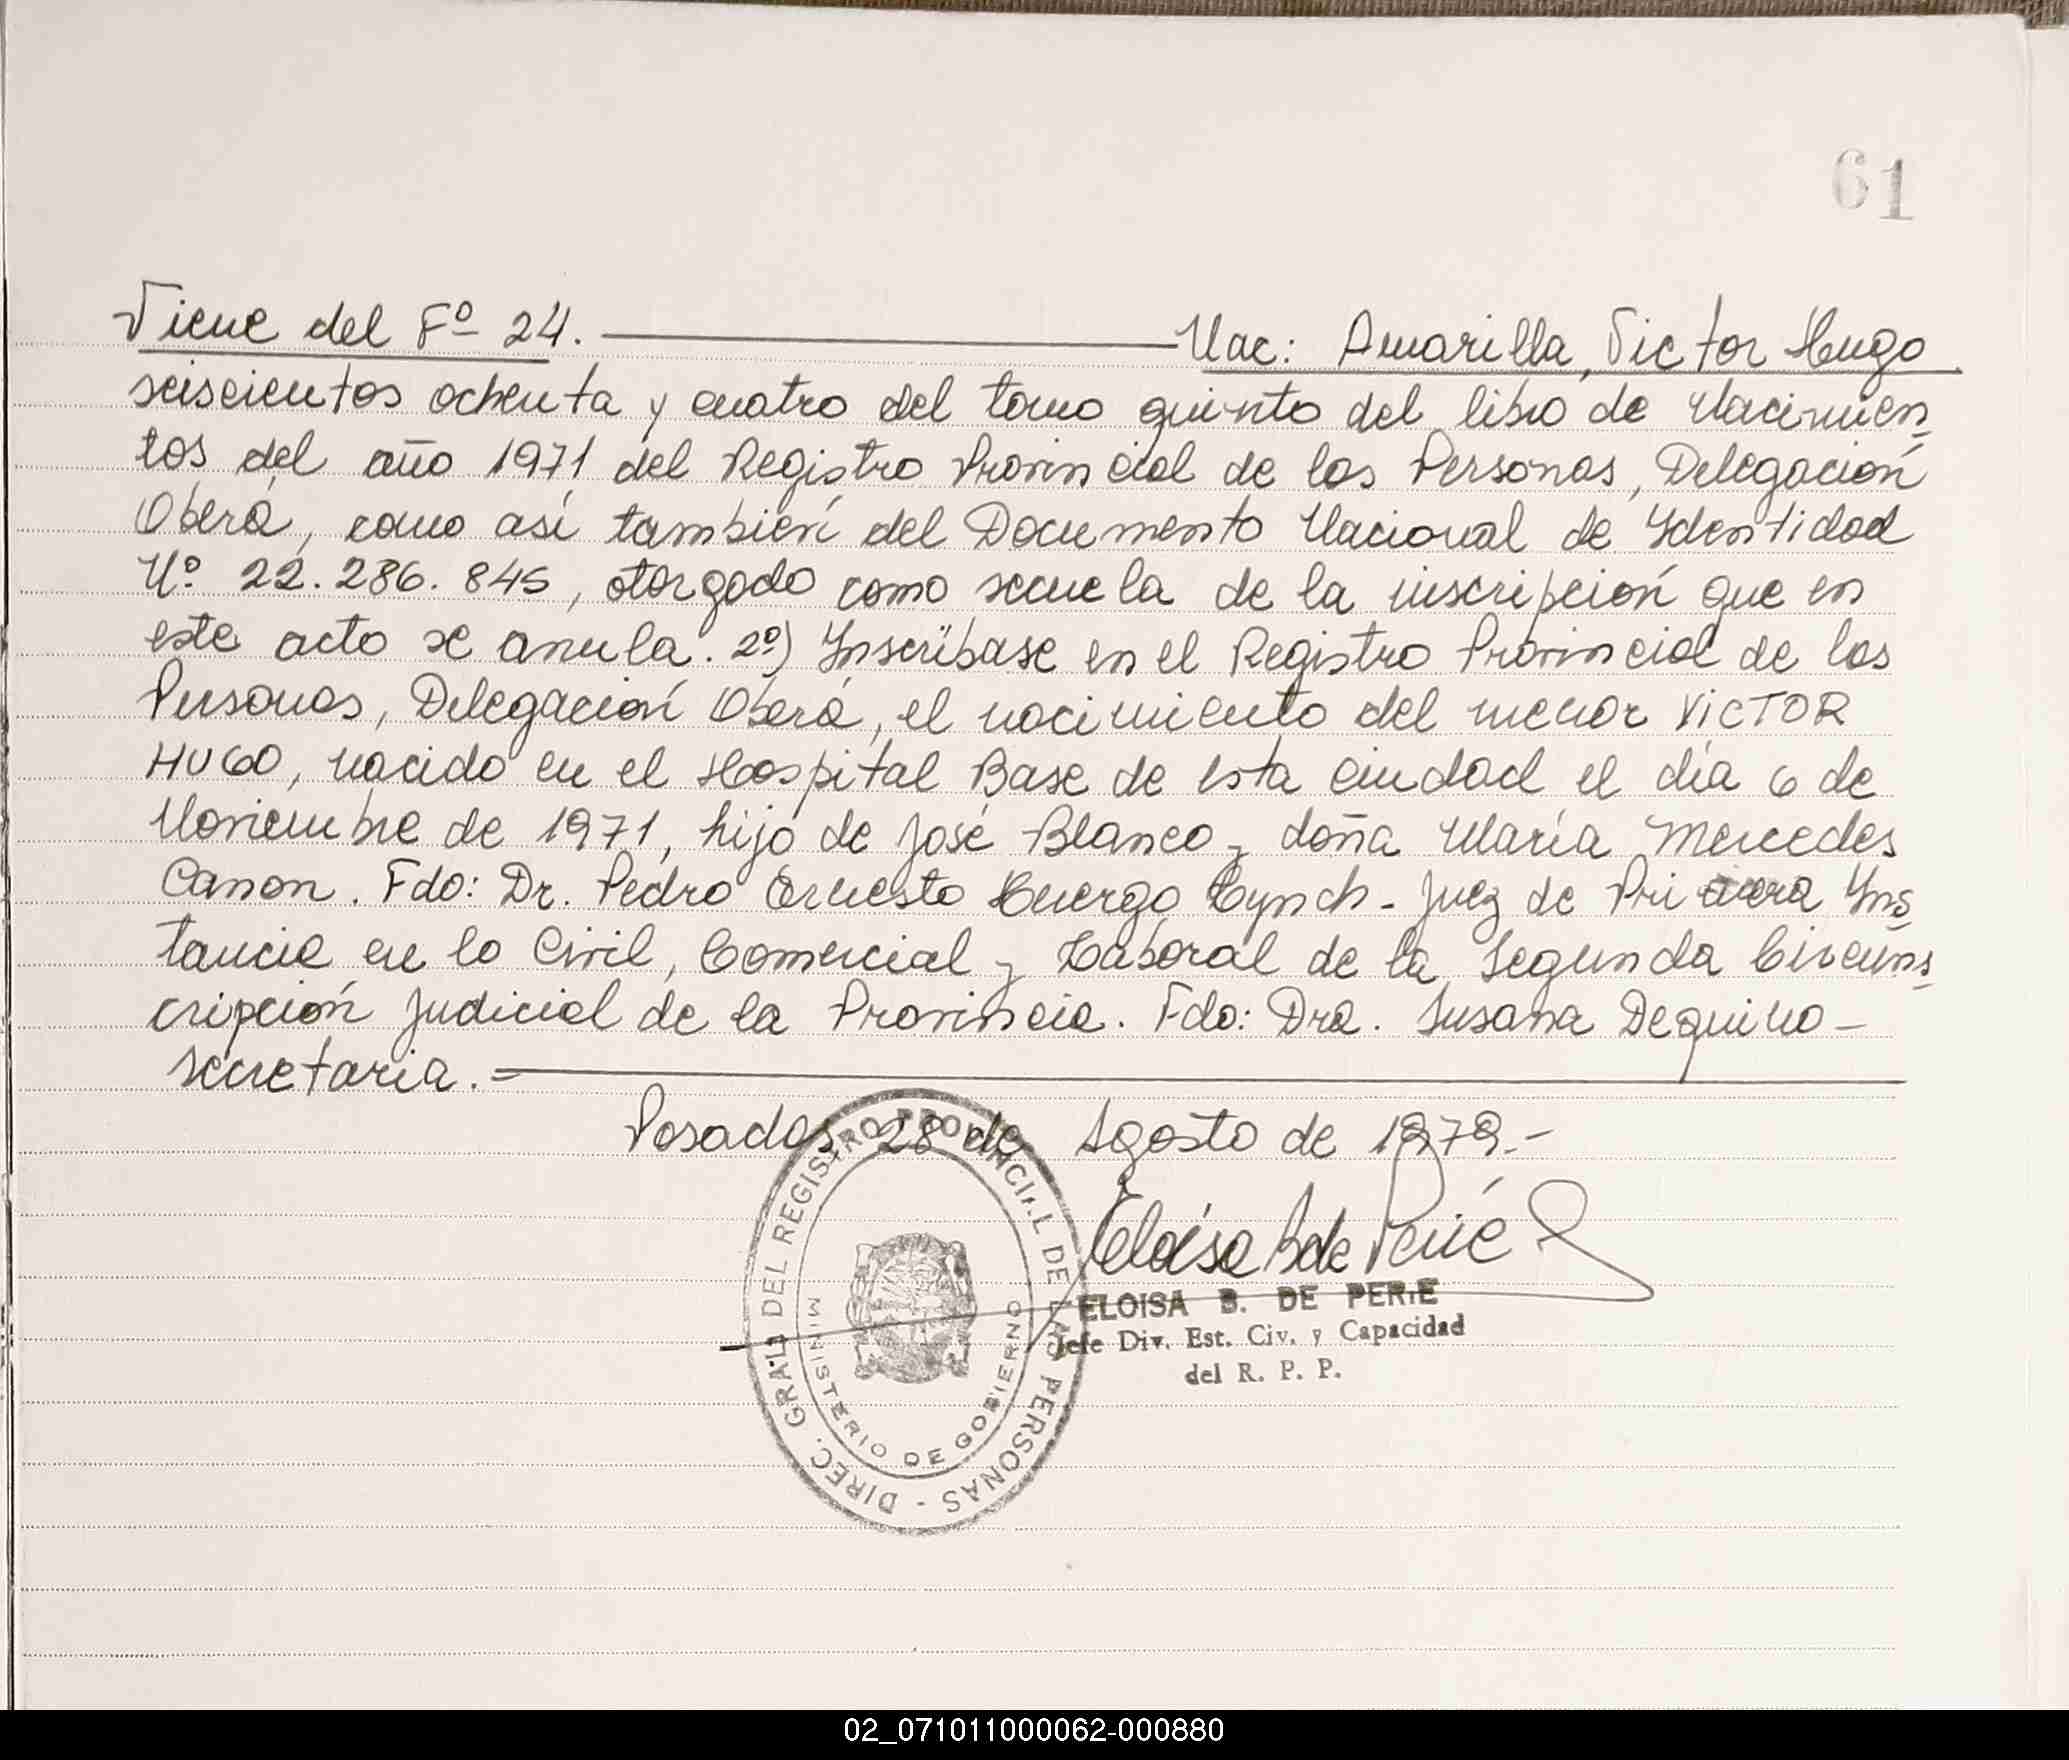 61
Viene del Fº 24. Nac: Amarilla, Victor Hugo
seiscientos ochenta y cuatro del tomo quinto del libro de Nacimien
tos del año 1971 del Registro Provincial de las Personas, Delegación
Oberá, como así también del Documento Nacional de Identidad
Nº 22.286.845, otorgado como secuela de la inscripción que en
este acto se anula. 2º) Inscríbase en el Registro Provincial de las
Personas, Delegación Oberá, el nacimiento del menor VICTOR
HUGO, nacido en el Hospital Base de esta ciudad el día 6 de
Noviembre de 1971, hijo de José Blanco y doña María Mercedes
Canon. Fdo: Dr. Pedro Ernesto Huergo Lynch - Juez de Primera Ins
tancia en lo Civil, Comercial y Laboral de la Segunda Circuns
cripción Judicial de la Provincia. Fdo: Dra. Susana Dequino -
secretaria. -
Posadas, 28 de Agosto de 1979.-
Eloisa B de Perié
ELOISA B. DE PERIE
Jefe Div. Est. Civ. y Capacidad
del R. P. P.
DIREC. GRAL. DEL REGISTRO PROVINCIAL DE LAS PERSONAS -
MINISTERIO DE GOBIERNO
02_071011000062-000880